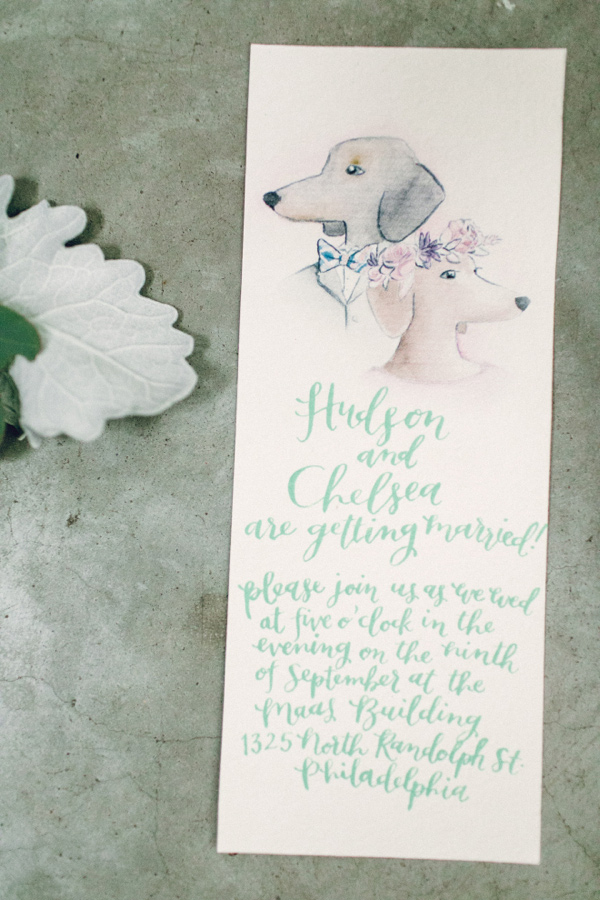 Hudson
and
Chelsea
are getting married!
please join us as we wed
at five o'clock in the
evening on the ninth
of September at the
Maas Building
1325 North Randolph St.
Philadelphia